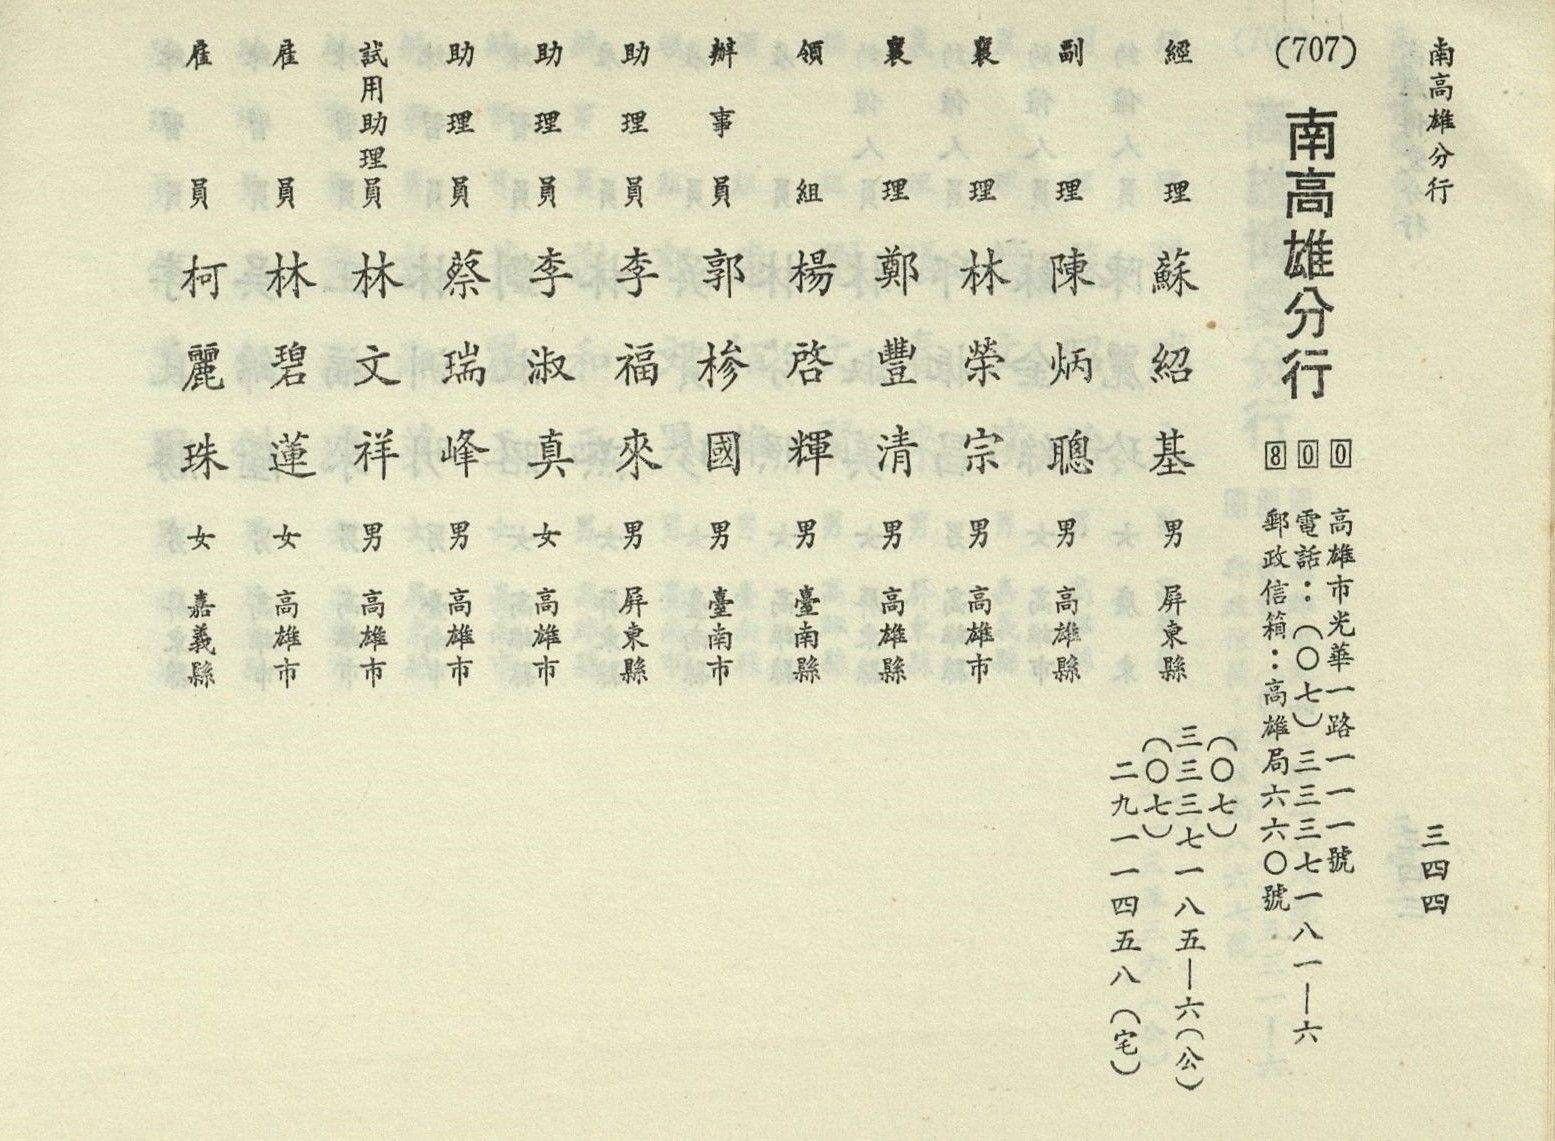 南高雄分行 三四四
(707) 南高雄分行
800
高雄市光華一路一一一號
電話：（〇七）三三三七一八一—六
郵政信箱：高雄局六六〇號
經理 蘇紹基 男 屏東縣 （〇七）三三三七一八五—六（公）
（〇七）二九一一四五八（宅）
副理 陳炳聰 男 高雄縣
襄理 林榮宗 男 高雄市
襄理 鄭豐清 男 高雄縣
領組 楊啓輝 男 臺南縣
辦事員 郭椮國 男 臺南市
助理員 李福來 男 屏東縣
助理員 李淑真 女 高雄市
助理員 蔡瑞峰 男 高雄市
試用助理員 林文祥 男 高雄市
雇員 林碧蓮 女 高雄市
雇員 柯麗珠 女 嘉義縣